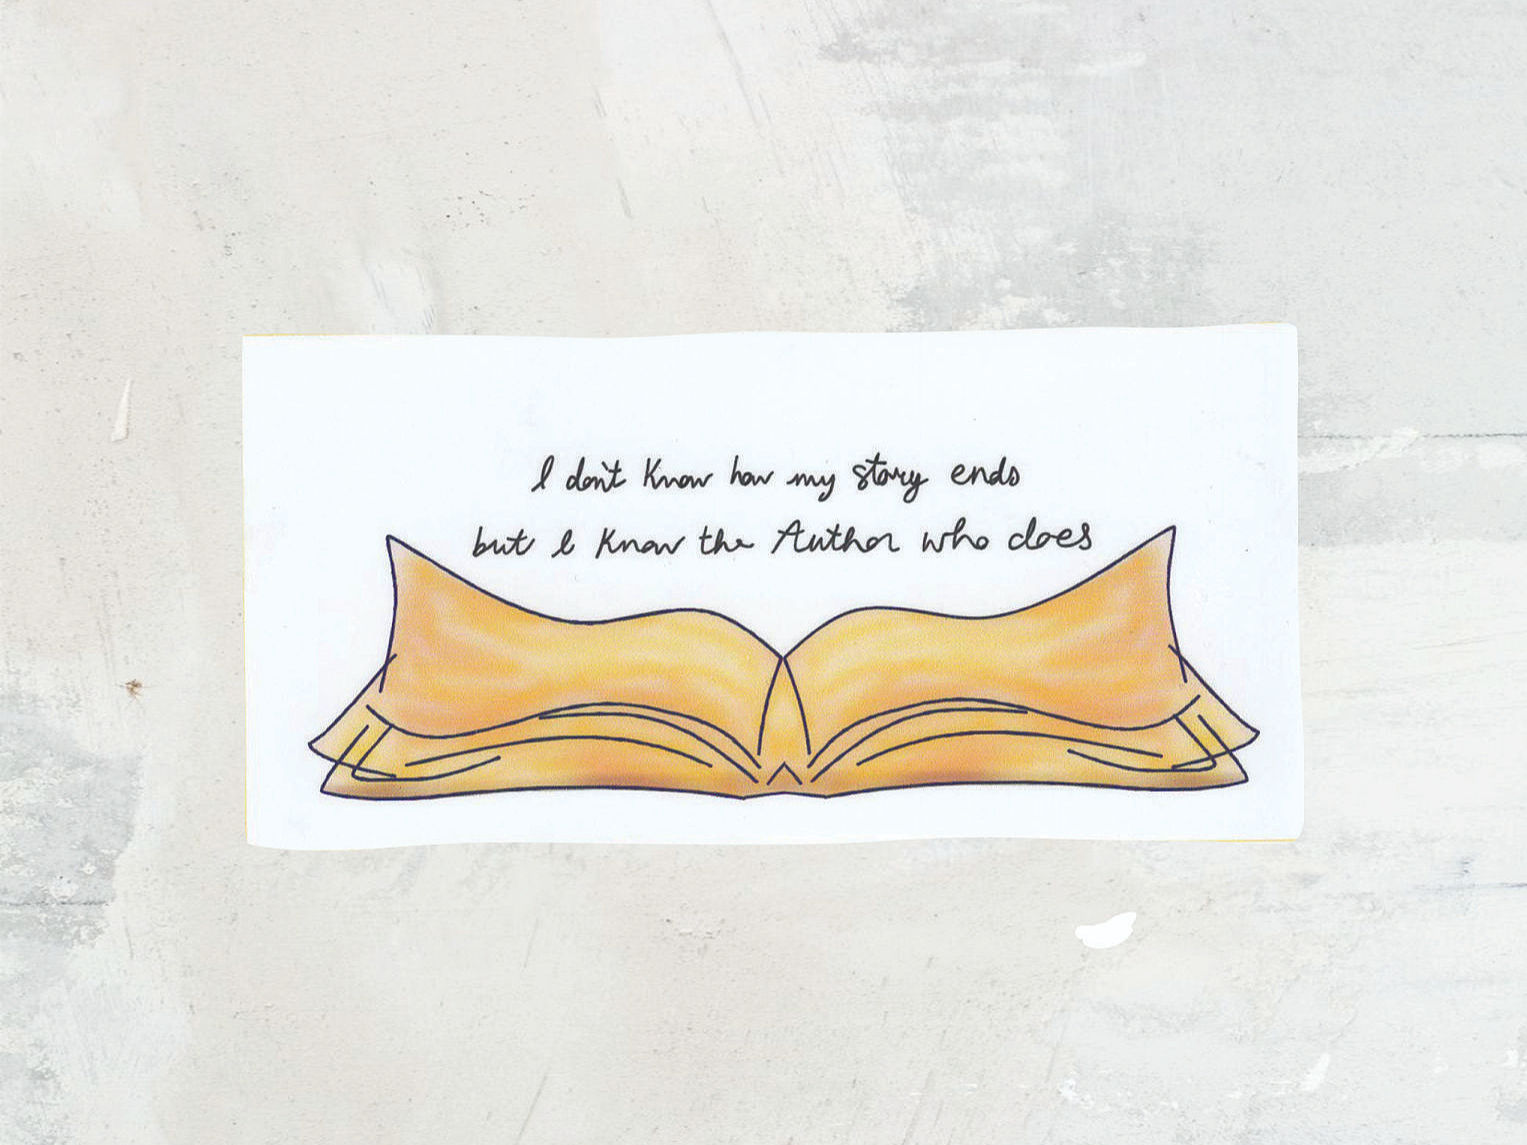 I don't know how my story ends
but I know the Author who does